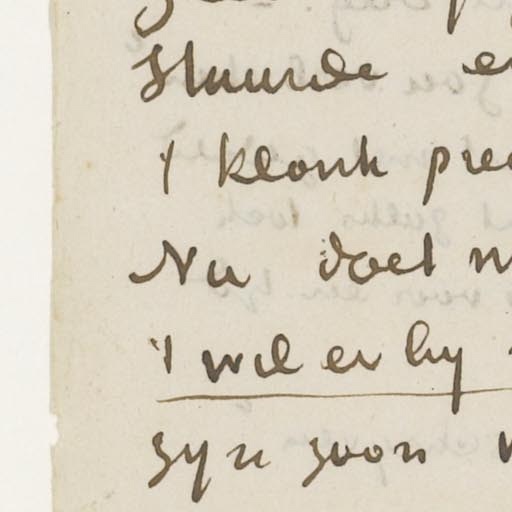 Stuurde
't klonk
Nu doet
't wil er by
zyn zoon